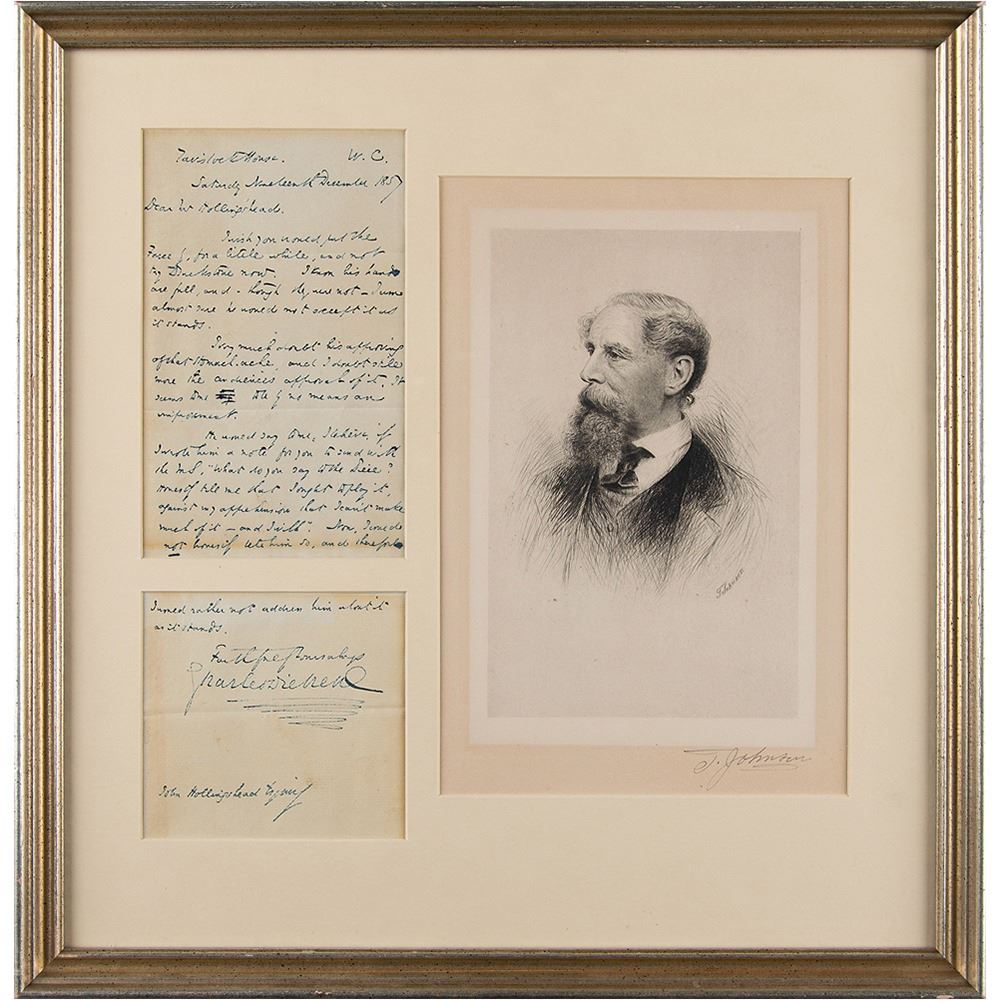 Tavistock House. W. C.
Saturday Nineteenth December 1857
Dear Mr Hollingshead.
I wish you would put the
Farce by, for a little while, and not
try Buckstone now. I know his hands
are full, and – though they were not – I am
almost sure he would not accept it as
it stands.
I very much doubt his approving
of that stomach-ache, and I doubt still
more the audience's approval of it. It
seems to me to be by no means an
improvement.
He would say to me, I believe, if
I wrote him a note for you to send with
the MS, "What do you say to the Piece?
Honestly tell me that I ought to play it,
against my apprehension that I can't make
much of it – and I will". Now, I could
not honestly tell him so, and therefore
I would rather not address him about it
as it stands.
Faithfully Yours always
Charles Dickens
John Hollingshead Esquire
T. Johnson
T. Johnson